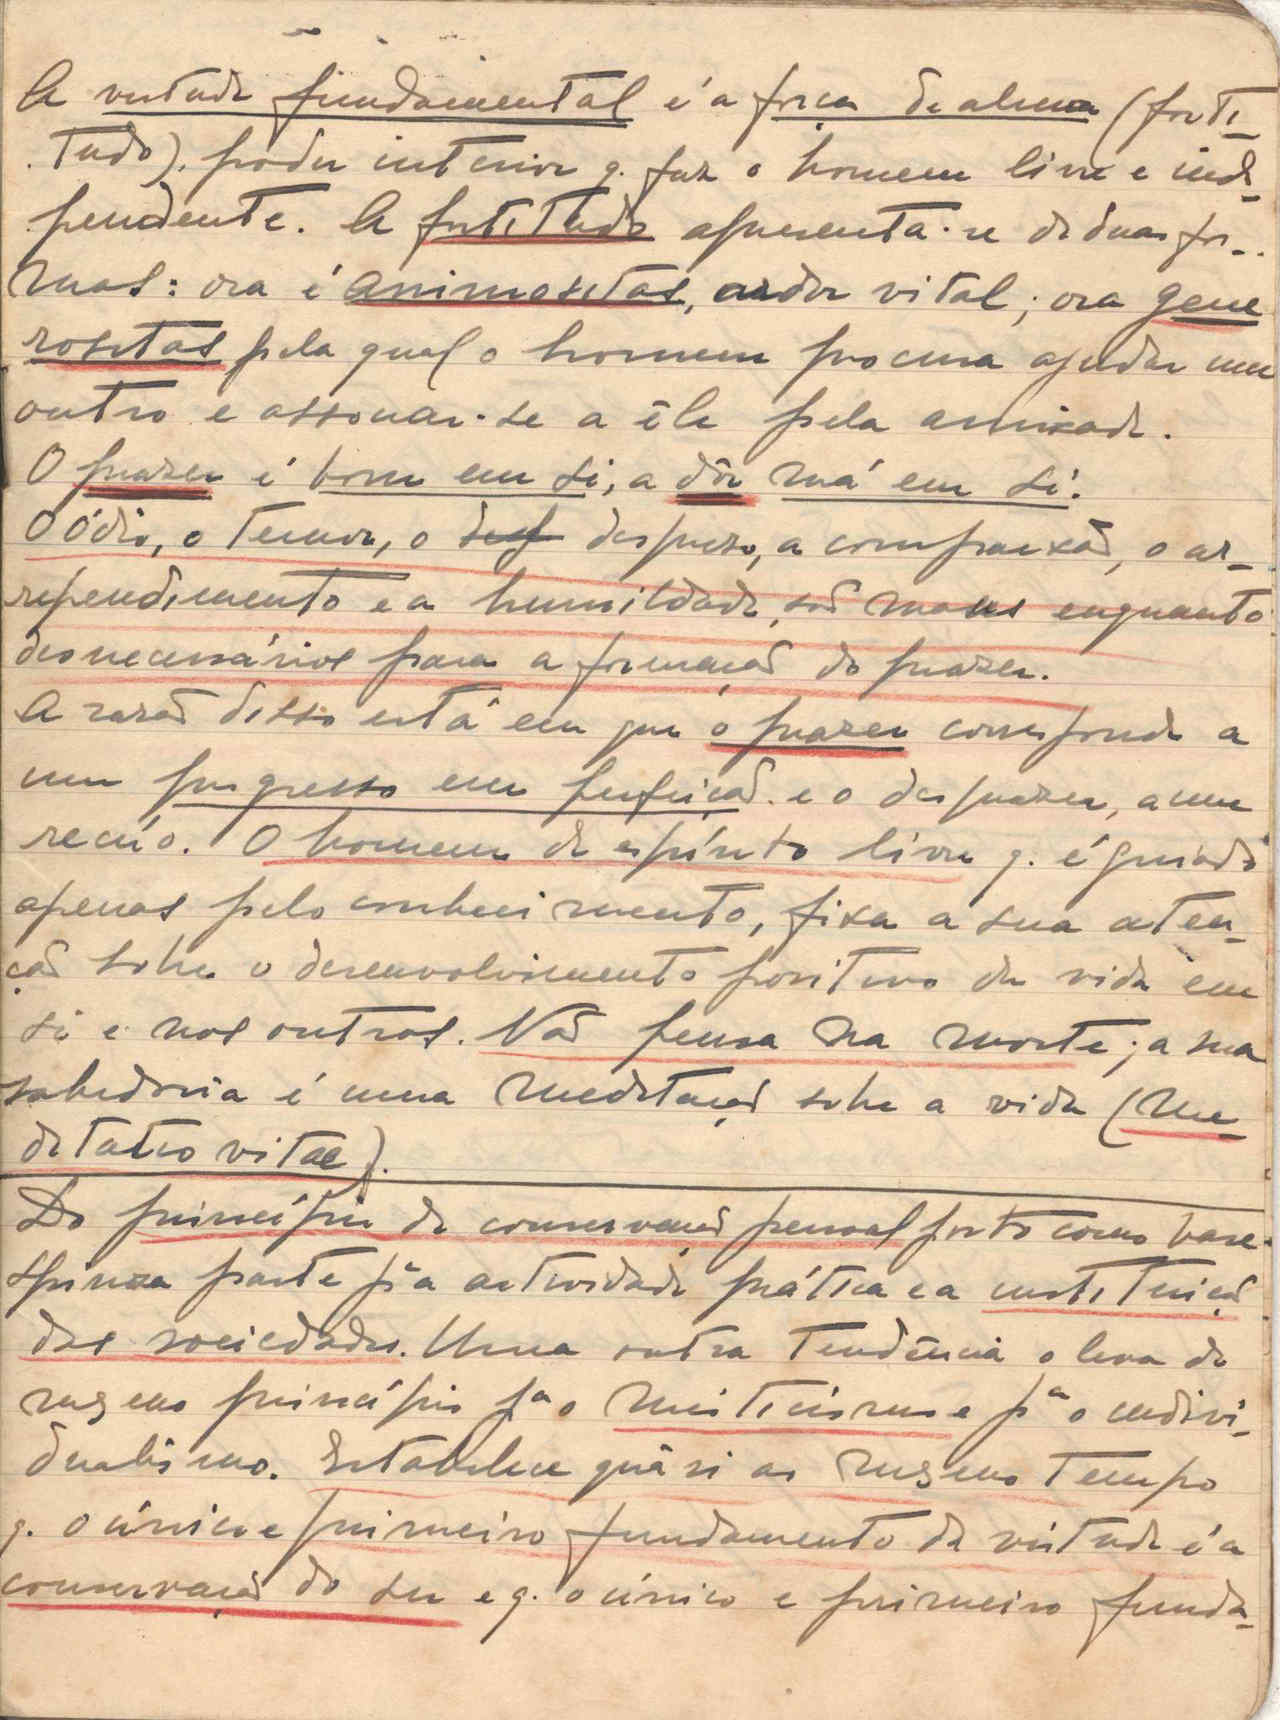 A virtude fundamental é a força de alma (forti-
tudo), poder interior q. faz o homem livre e inde-
pendente. A fortitudo apresenta-se de duas for-
mas: ora é animositas, ardor vital; ora gene
rositas pela qual o homem procura ajudar um
outro e associar-se a êle pela amizade.
O prazer é bom em si, a dôr má em si.
O ódio, o temor, o desprezo, a compaixão, o ar-
rependimento e a humildade, são maus enquanto
desnecessários para a formação do prazer.
A razão disso está em que o prazer corresponde a
um progresso em perfeição e o desprazer, a um
recúo. O homem de espírito livre q. é guiado
apenas pelo conhecimento, fixa a sua aten-
ção sobre o desenvolvimento positivo da vida em
si e nos outros. Não pensa na morte; a sua
sabedoria é uma meditação sobre a vida (Me-
ditatio vitae).
Do princípio de conservação pessoal posto como base
Spinoza parte pª a actividade prática e a instituição
das sociedades. Uma outra tendência o leva do
mesmo princípio pª o misticismo e pª o indivi-
dualismo. Estabelece quâsi ao mesmo tempo
q. o único e primeiro fundamento da virtude é a
conservação do ser e q. o único e primeiro funda-